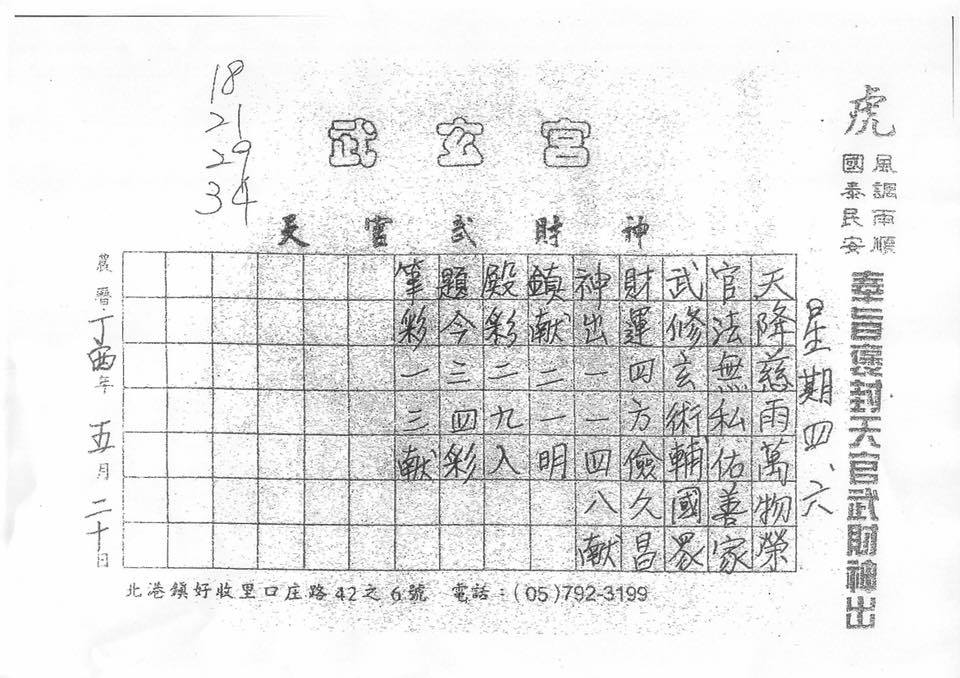 虎
風調雨順
國泰民安
奉旨褒封天官武財神出
星期四、六
武玄宮
天官武財神
18
21
29
34
天降慈雨萬物榮
官法無私佑善家
武修玄術輔國眾
財運四方儉久昌
神出一一四八献
鎮献二一明
殿彩二九入
題今三四彩
筆彩一三献
農曆丁酉年五月二十日
北港鎮好收里口庄路42之6號 電話:(05)792-3199